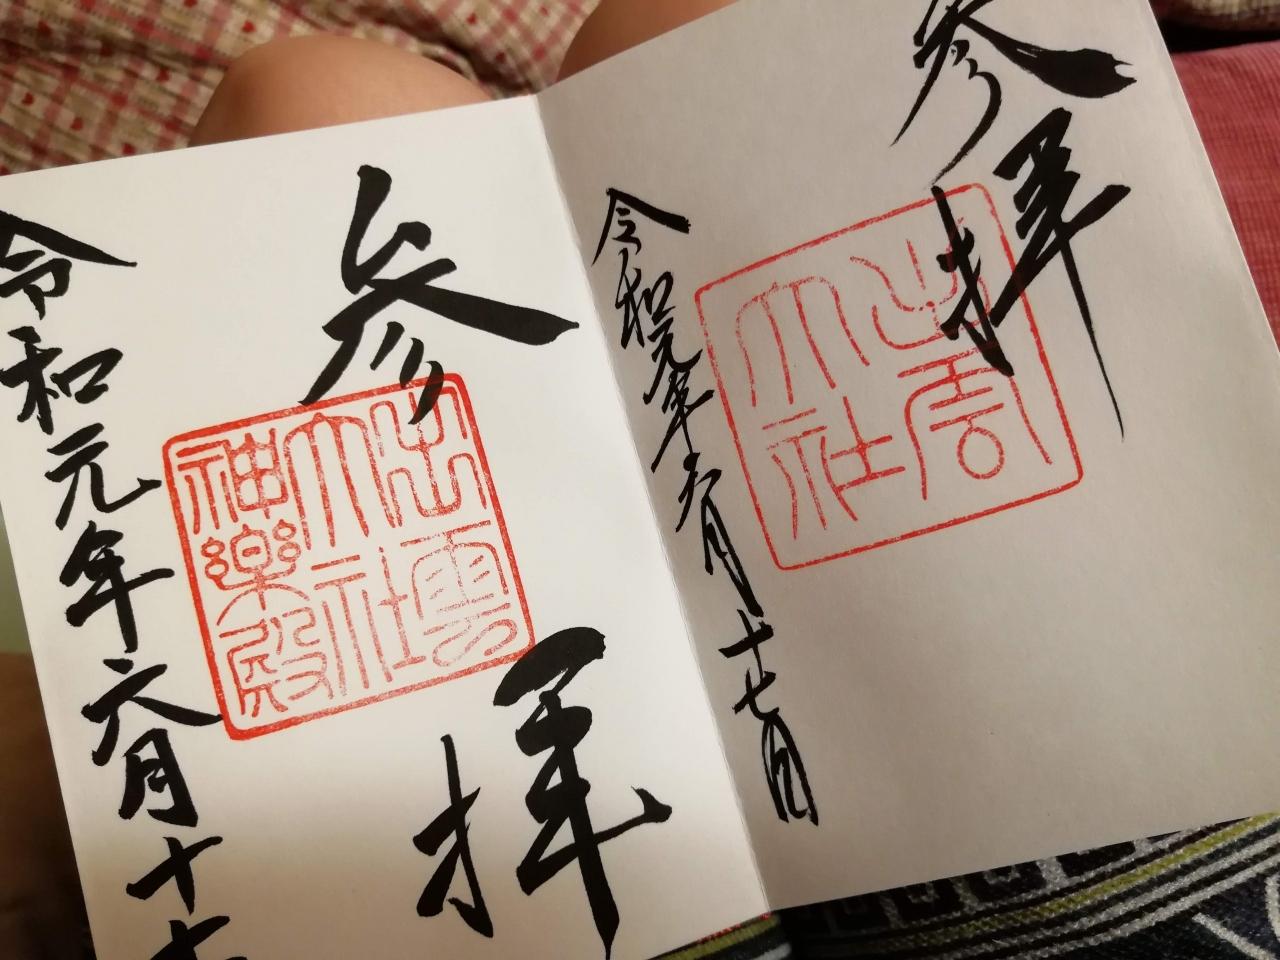 参拝
出雲
大社
令和元年六月十七日
参拝
出雲
大社
神樂殿
令和元年六月十七